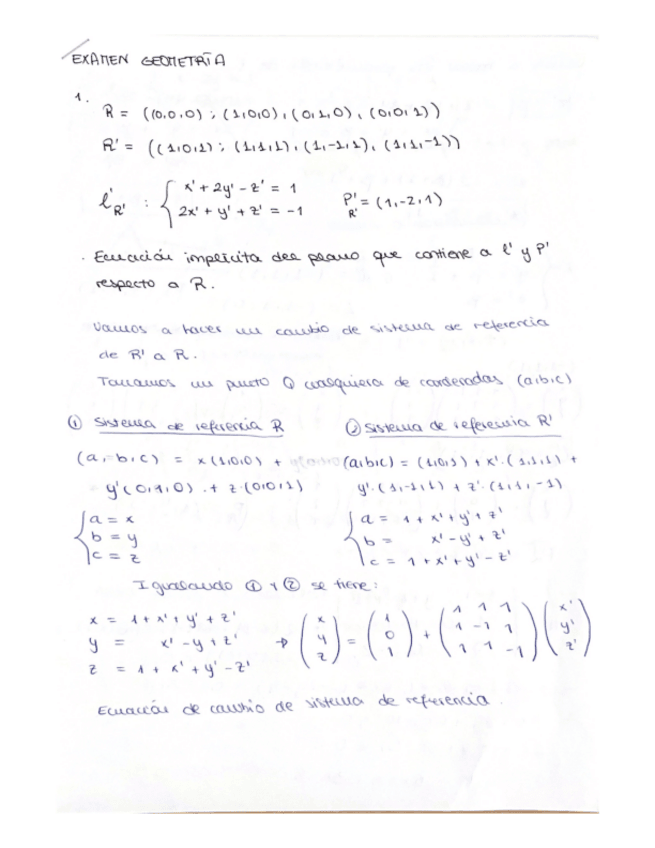 EXAMEN GEOMETRÍA
1.
R = ((0,0,0) ; (1,0,0), (0,1,0), (0,0,1))
R' = ((1,0,1) ; (1,1,1), (1,-1,1), (1,1,-1))
l'R' : { x' + 2y' - z' = 1
2x' + y' + z' = -1
P'R' = (1,-2,1)
· Ecuación implícita del plano que contiene a l' y P'
respecto a R.
Vamos a hacer un cambio de sistema de referencia
de R' a R.
Tomamos un punto Q cualquiera de coordenadas (a,b,c)
① Sistema de referencia R
(a,b,c) = x(1,0,0) +
y'(0,1,0) + z·(0,0,1)
{ a = x
b = y
c = z
② Sistema de referencia R'
(a,b,c) = (1,0,1) + x'·(1,1,1) +
y'·(1,-1,1) + z'·(1,1,-1)
{ a = 1 + x' + y' + z'
b = x' - y' + z'
c = 1 + x' + y' - z'
Igualando ① y ② se tiene:
x = 1 + x' + y' + z'
y = x' - y + z'
z = 1 + x' + y' - z'
→ (x y z) = (1 0 1) + (1 1 1 1 -1 1 1 1 -1) (x' y' z')
Ecuación de cambio de sistema de referencia.